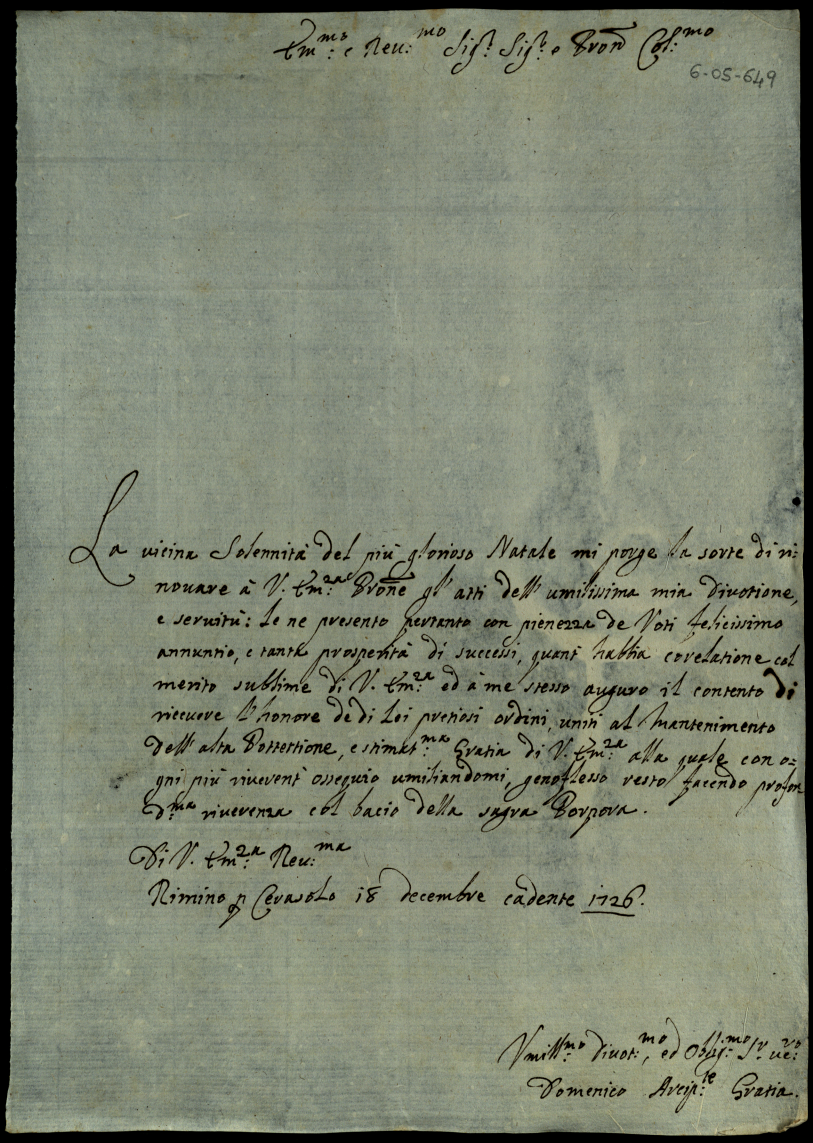 Em.mo e Reu.mo Sig.r Sig.r e Prone Col.mo
6-05-649
La uicina Solennità del più glorioso Natale mi porge la sorte di ri:
nouare à V. Em.za Prone gl'atti dell'umilissima mia diuotione,
e seruitù: Le ne presento pertanto con pienezza de Voti felicissimo
annuntio, e tanta prosperità di successi, quant'habbia corelatione col
merito sublime di V. Em.za ed à me stesso auguro il contento di
riceuere l'honore de di Lei pretiosi ordini, uniti al mantenimento
dell'alta Prottettione, e stimat.ma Gratia di V. Em.za alla quale con o=
gni più riuerent'ossequio umiliandomi, genoflesso resto facendo profon
d.ma riuerenza col bacio della sagra Porpora.
Di V. Em.za Reu.ma
Rimino p Cerasolo 18 decembre cadente 1726.
Vmill.mo diuot.mo, ed obblig.mo S.r ue.ro
Domenico Arcip.te Gratia.